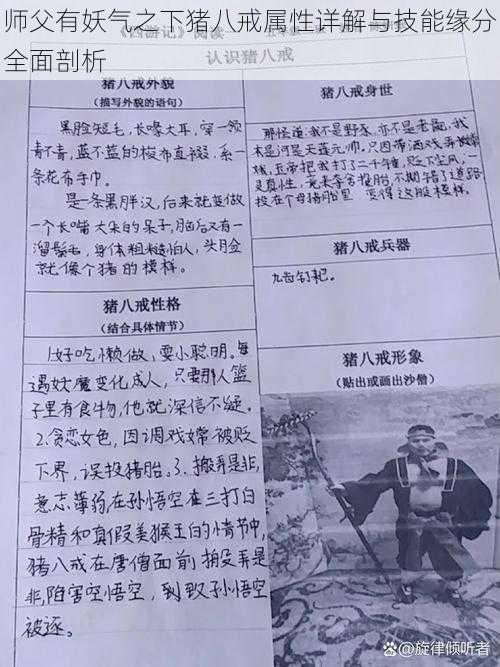 师父有妖气之下猪八戒属性详解与技能缘分
全面剖析
《西游记》阅读
认识猪八戒
猪八戒外貌
(描写外貌的语句)
黑脸短毛,长喙大耳,穿一领
青不青,蓝不蓝的梭布直裰,系一
条花布手巾。
是一条黑胖汉,后来就变做
一个长嘴大耳的呆子,脑后又有一
溜鬃毛,身体粗糙怕人,头脸
就像个猪的模样。
猪八戒性格
(结合具体情节)
1.好吃懒做,耍小聪明。每
遇妖魔变化成人,只要那人篮
子里有食物,他就深信不疑。
2.贪恋女色,因调戏嫦被贬
下界,误投猪胎。3.搬弄是非,
意志薄弱,在孙悟空在三打白
骨精和真假美猴王的情节中,
猪八戒在唐僧面前搬弄是
非,陷害空悟空,到致孙悟空
被逐。
猪八戒身世
那怪道:我不是野豕,亦不是老彘,我
本是河是天蓬元帅,只因带酒戏弄嫦
娥,玉帝把我打了二千锤,贬下尘凡,一
灵真性,竟来夺舍投胎,不期错了道路
投在个母猪胎里 变得这般模样。
猪八戒兵器
九齿钉耙。
猪八戒形象
(贴出或画出沙僧)
旋律倾听者